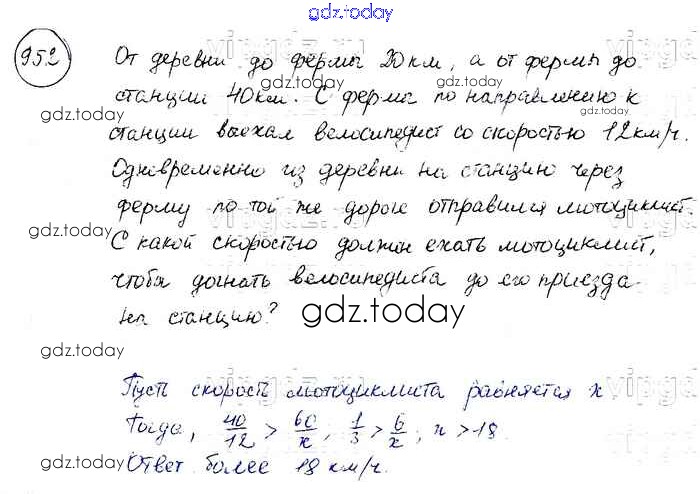 gdz.today
952
От деревни до фермы 20 км, а от фермы до
станции 40 км. С фермы по направлению к
gdz.today
gdz.today
станции выехал велосипедист со скоростью 12 км/ч.
Одновременно из деревни на станцию через
ферму по той же дороге отправился мотоциклист.
gdz.today
gdz.today
С какой скоростью должен ехать мотоциклист,
чтобы догнать велосипедиста до его приезда
на станцию?
gdz.today
gdz.today
Пусть скорость мотоциклиста равняется x
Тогда, 40/12 > 60/x, 1/3 > 6/x; x > 18
Ответ более 18 км/ч.
gdz.today
gdz.today